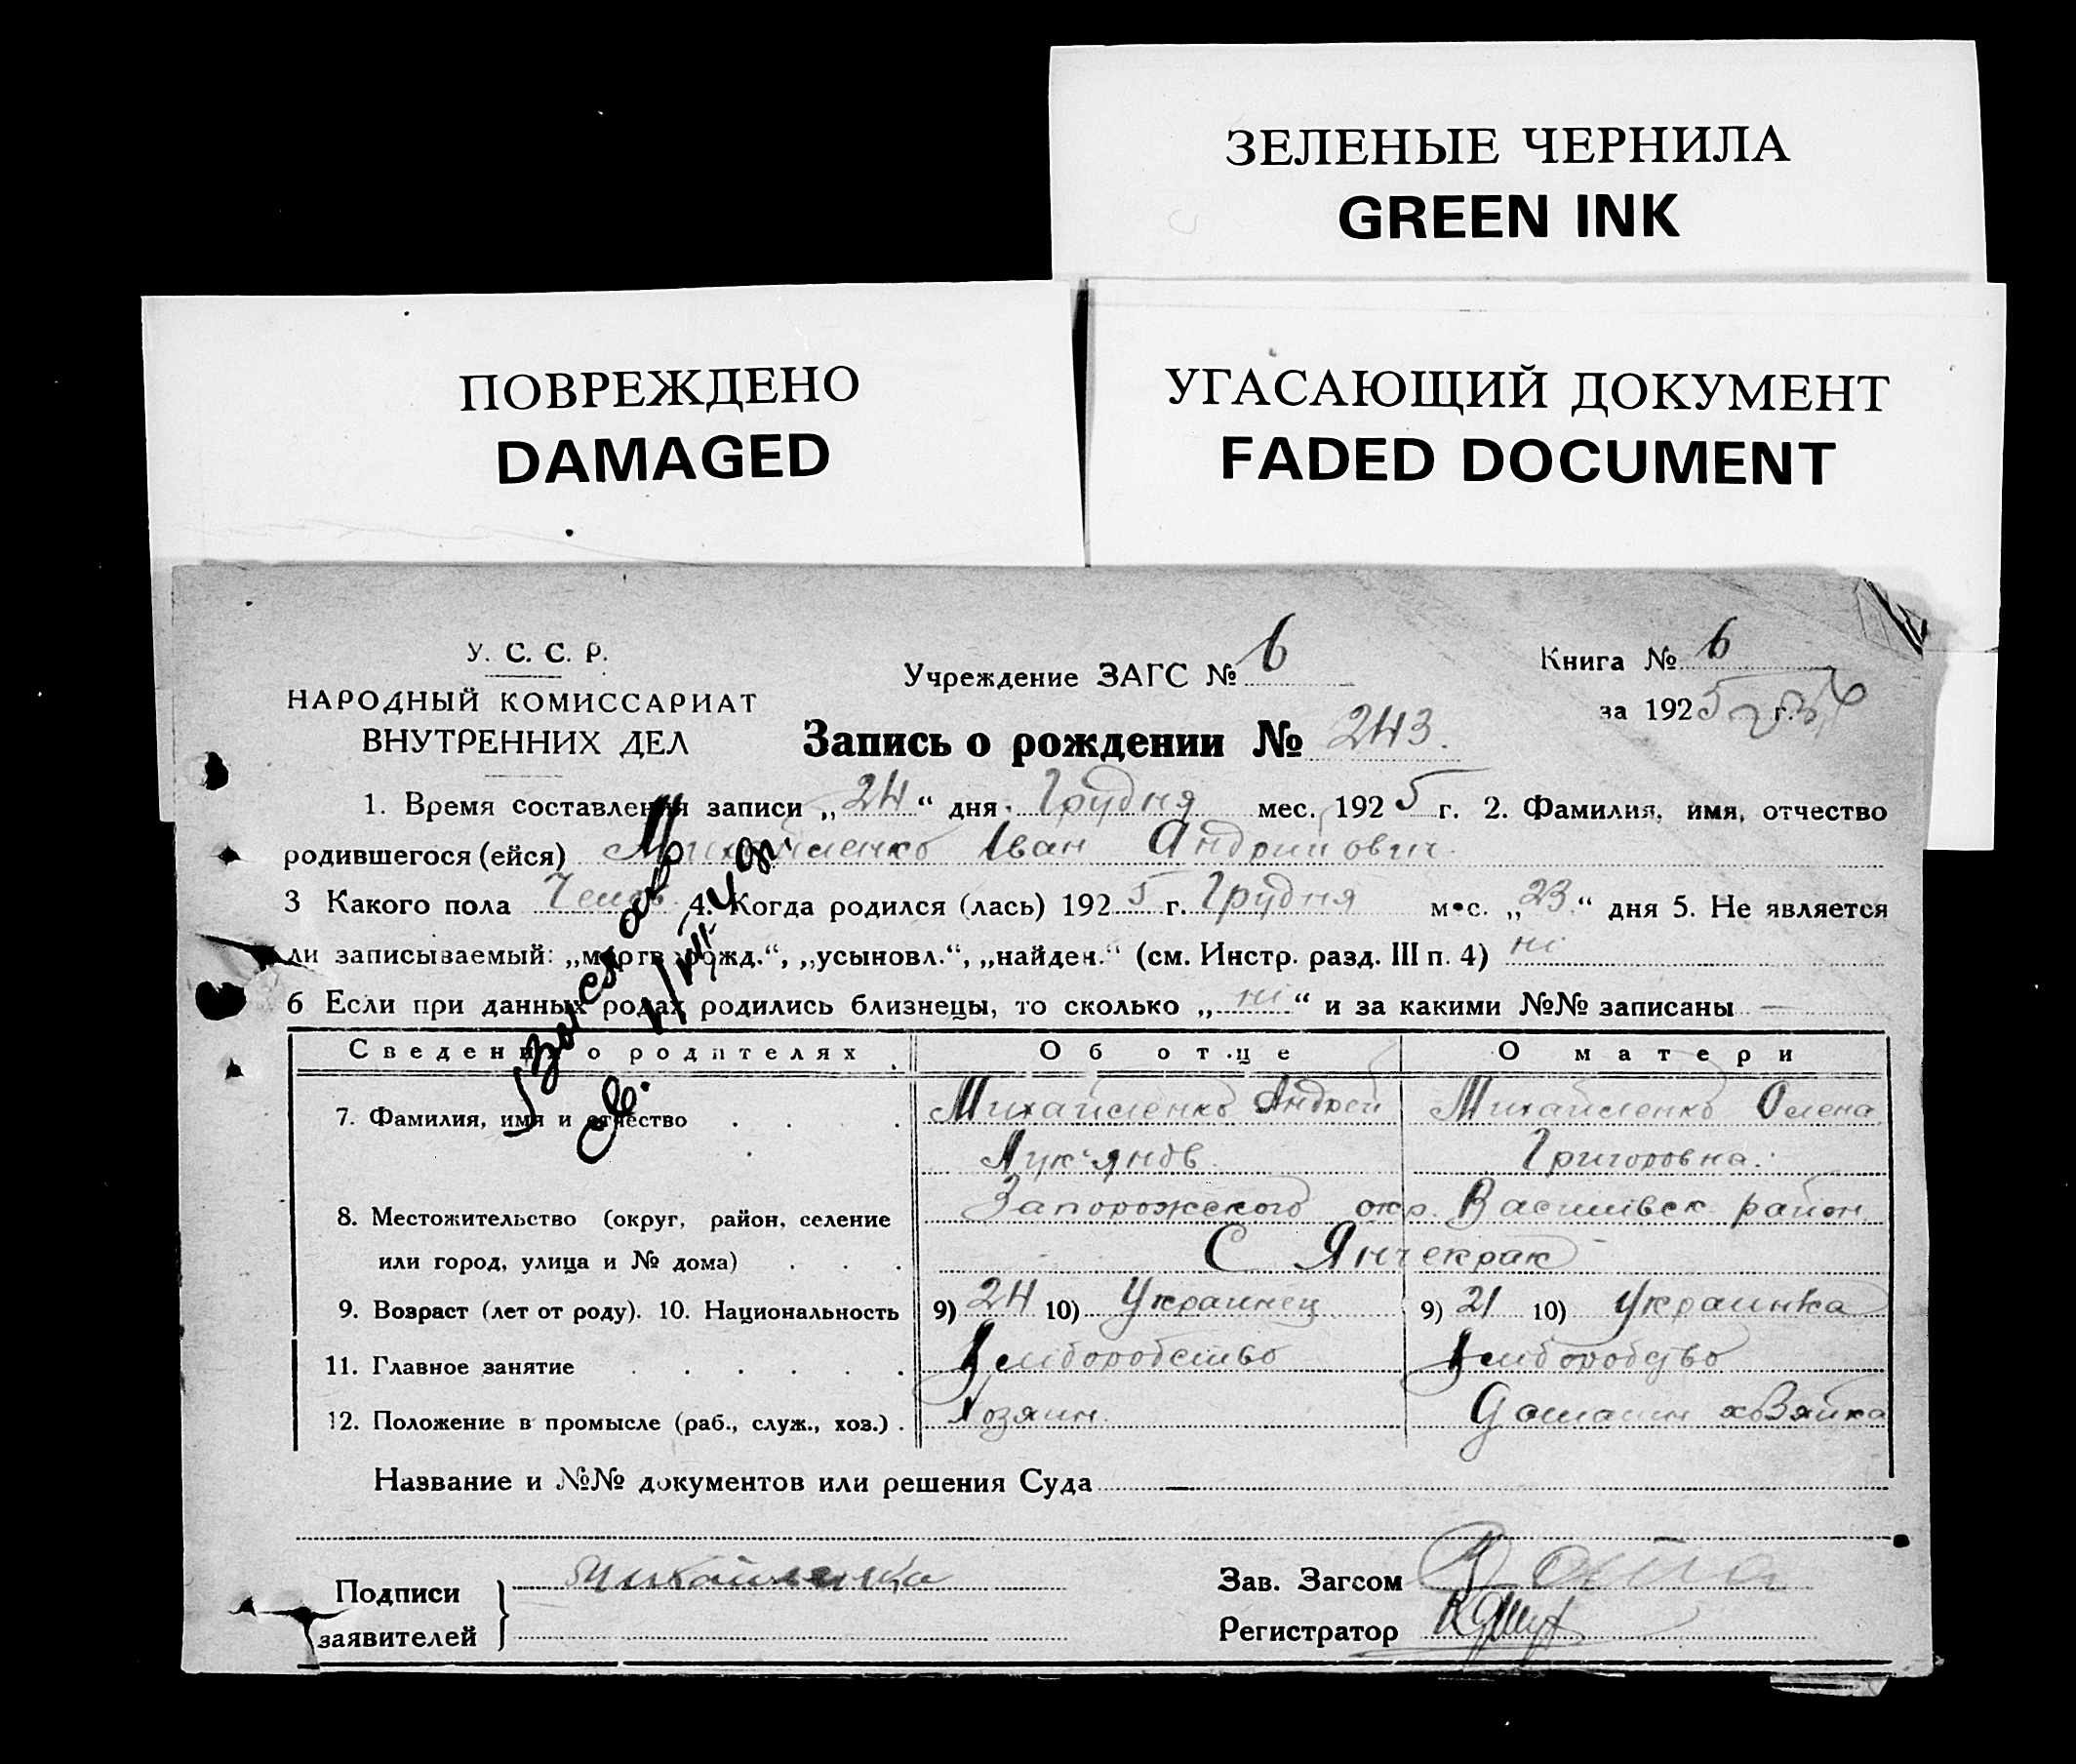 ЗЕЛЕНЫЕ ЧЕРНИЛА
GREEN INK
ПОВРЕЖДЕНО
DAMAGED
УГАСАЮЩИЙ ДОКУМЕНТ
FADED DOCUMENT
У. С. С. Р.
НАРОДНЫЙ КОМИССАРИАТ
ВНУТРЕННИХ ДЕЛ
Учреждение ЗАГС № 6
Книга № 6
за 1925 г.
Запись о рождении № 243.
1. Время составления записи „24“ дня Грудня мес. 1925 г. 2. Фамилия, имя, отчество
родившегося (ейся) Михайленко Іван Андрийович
3 Какого пола 4. Когда родился (лась) 1925 г. Грудня мес. „23“ дня 5. Не является
ли записываемый: „мертв. рожд.“, „усыновл.“, „найден.“ (см. Инстр. разд. III п. 4) ні
6 Если при данных родах родились близнецы, то сколько „ні“ и за какими №№ записаны —
Сведения о родителях Об отце О матери
7. Фамилия, имя и отчество Михайленко Андрей Михайленко Олена
Лук'янов Григоровна.
8. Местожительство (округ, район, селение Запорожского окр. Василівск район
или город, улица и № дома) С Янчекрак
9. Возраст (лет от роду). 10. Национальность 9) 24 10) Украинец 9) 21 10) Украинка
11. Главное занятие Хліборобство Хліборобство
12. Положение в промысле (раб., служ., хоз.) Хозяин. Домашн хозяйка
Название и №№ документов или решения Суда —
Подписи
заявителей
Михайленко
Зав. Загсом
Регистратор